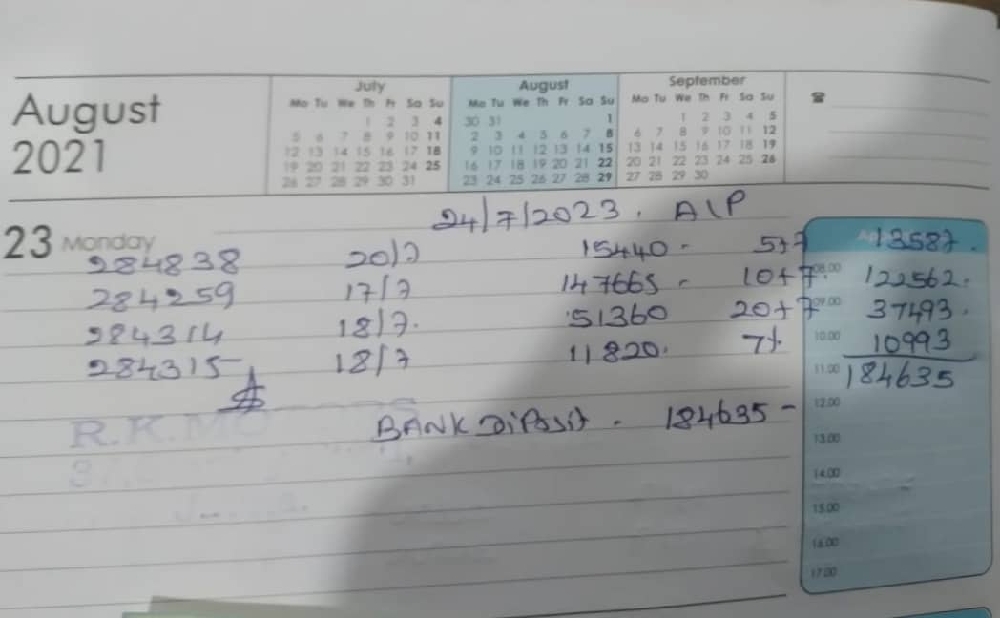 July August September
August Mo Tu We Th Fr Sa Su Mo Tu We Th Fr Sa Su Mo Tu We Th Fr Sa Su
2021 1 2 3 4 30 31 1 1 2 3 4 5
5 6 7 8 9 10 11 2 3 4 5 6 7 8 6 7 8 9 10 11 12
12 13 14 15 16 17 18 9 10 11 12 13 14 15 13 14 15 16 17 18 19
19 20 21 22 23 24 25 16 17 18 19 20 21 22 20 21 22 23 24 25 26
26 27 28 29 30 31 23 24 25 26 27 28 29 27 28 29 30
24/7/2023. A\P
23 Monday
284838 20/7 15440- 5+7 13587.
284259 17/7 147665- 10+7 08.00 122562.
284314 18/7. 51360 20+7 09.00 37493.
284315 18/7 11820. 7+ 10.00 10993
11.00 184635
BANK Diposit. 184635- 12.00
R.K.MO
13.00
14.00
15.00
16.00
17.00